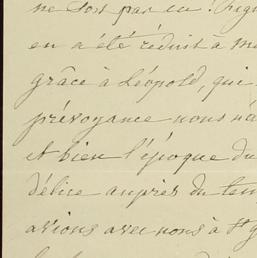 ne soit pas eu !
en a été réduit à m
grâce à Léopold, qui
prévoyance nous n'a
et bien l'époque du
délice auprès du
avions avec nous à St